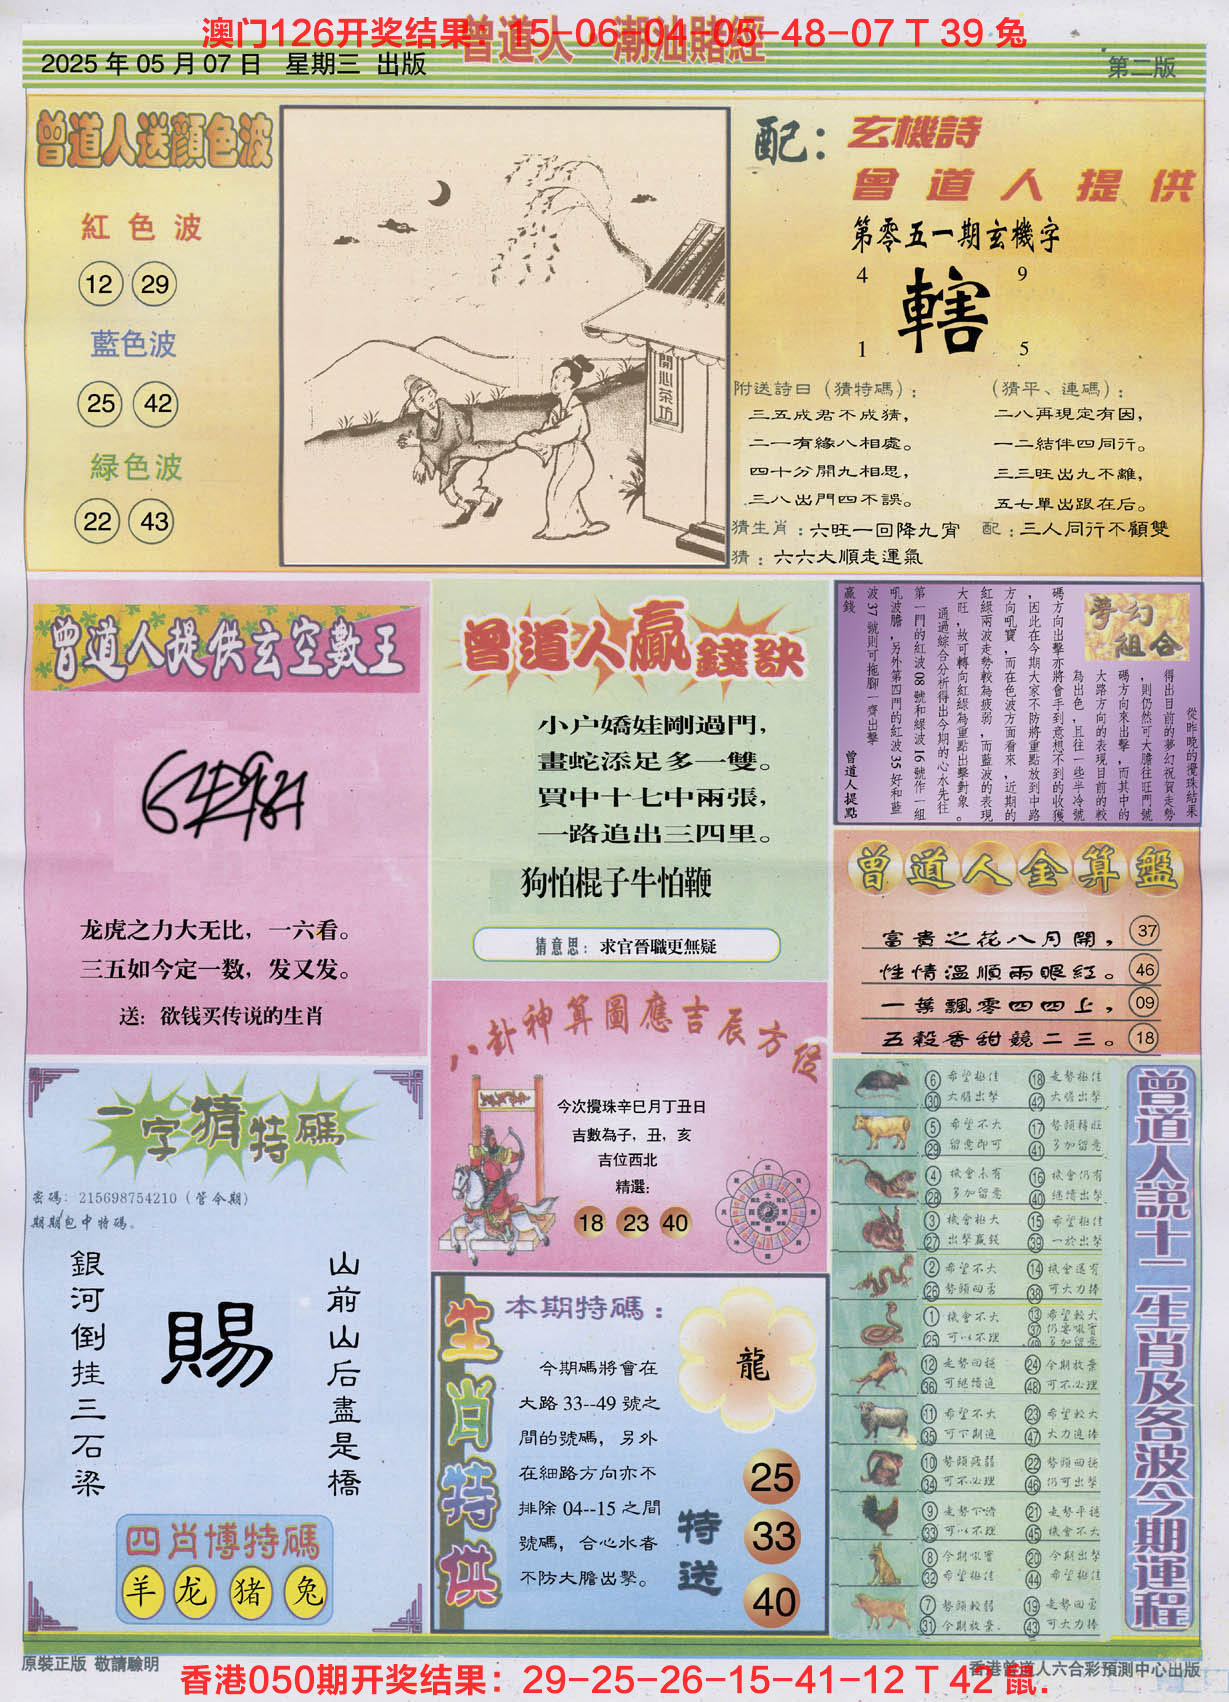 澳门126开奖结果：15-06-04-05-48-07 T 39 兔
曾道人 潮汕賭經
2025 年 05 月 07 日 星期三 出版
第二版
曾道人送顏色波
紅色波
12 29
藍色波
25 42
緑色波
22 43
開心茶坊
配：玄機詩
曾道人提供
第零五一期玄機字
4 9
轄
1 5
附送詩曰（猜特碼）：
三五成君不成猜，
二一有緣八相處。
四十分開九相思，
三八出門四不誤。
（猜平、連碼）：
二八再現定有因，
一二結伴四同行。
三三旺出九不離，
五七單出跟在后。
猜生肖：六旺一回降九宵 配：三人同行不顧雙
猜：六六大順走運氣
曾道人提供玄空數王
龙虎之力大无比，一六看。
三五如今定一数，发又发。
送：欲钱买传说的生肖
曾道人贏錢訣
小户嬌娃剛過門，
畫蛇添足多一雙。
買中十七中兩張，
一路追出三四里。
狗怕棍子牛怕鞭
猜意思：求官晉職更無疑
夢幻組合
從昨晚的攪珠結果
得出目前的夢幻祝賀走勢
，則仍然可大膽往旺門號
碼方向來出擊，而其中的
大路方向的表現目前的較
為出色，且往一些半冷號
碼方向出擊亦將會手到意想不到的收獲
，因此在今期大家不防將重點放到中路
方向吼寶，而在色波方面看來，近期的
紅綠兩波走勢較為疲弱，而藍波的表現
大旺，故可轉向紅綠為重點出擊對象。
通過綜合分析得出今期的心水先往
第一門的紅波 08 號和綠波 16 號作一組
吼波膽，另外第四門的紅波 35 好和藍
波 37 號則可拖腳一齊出擊
贏錢
曾道人提點
曾道人金算盤
富貴之花八月開， 37
性情溫順兩眼紅。 46
一葉飄零四四上， 09
五穀香甜競二三。 18
八卦神算圖應吉辰方位
今次攪珠辛巳月丁丑日
吉數為子，丑，亥
吉位西北
精選：
18 23 40
一字猜特碼
密碼：215698754210（管令期）
期期包中特碼。
銀河倒挂三石梁
賜
山前山后盡是橋
四肖博特碼
羊 龙 猪 兔
生肖特供
本期特碼：
今期碼將會在
大路 33--49 號之
間的號碼，另外
在細路方向亦不
排除 04--15 之間
號碼，合心水者
不防大膽出擊。
龍
特送
25
33
40
6 希望極佳 18 走勢極佳
30 大膽出擊 42 大膽出擊
5 希望不大 17 勢頭轉旺
29 留意即可 41 多加留意
4 機會未有 16 機會仍有
28 多加留意 40 继續出擊
3 機會極大 15 希望極佳
27 出擊贏錢 39 一於出擊
2 希望不大 14 機會還有
26 勢頭回落 38 可大力捧
1 機會不大 13 希望較大
25 可以不理 49 多加留意
12 走勢回穩 24 今期放棄
36 可继續追 48 可不必理
11 希望不大 23 希望較大
35 可下期追 47 大力追捧
10 勢頭疲弱 22 勢頭回穩
34 可不必理 46 仍可出擊
9 走勢下滑 21 走勢平穩
33 可以不理 45 機會不大
8 今期吼實 20 今期出擊
32 希望極佳 44 希望極佳
7 勢頭較弱 19 走勢回落
31 今期放棄. 43 可大力捧
曾道人説十二生肖及各波今期運程
原裝正版 敬請驗明
香港曾道人六合彩預測中心出版
香港050期开奖结果：29-25-26-15-41-12 T 42 鼠.